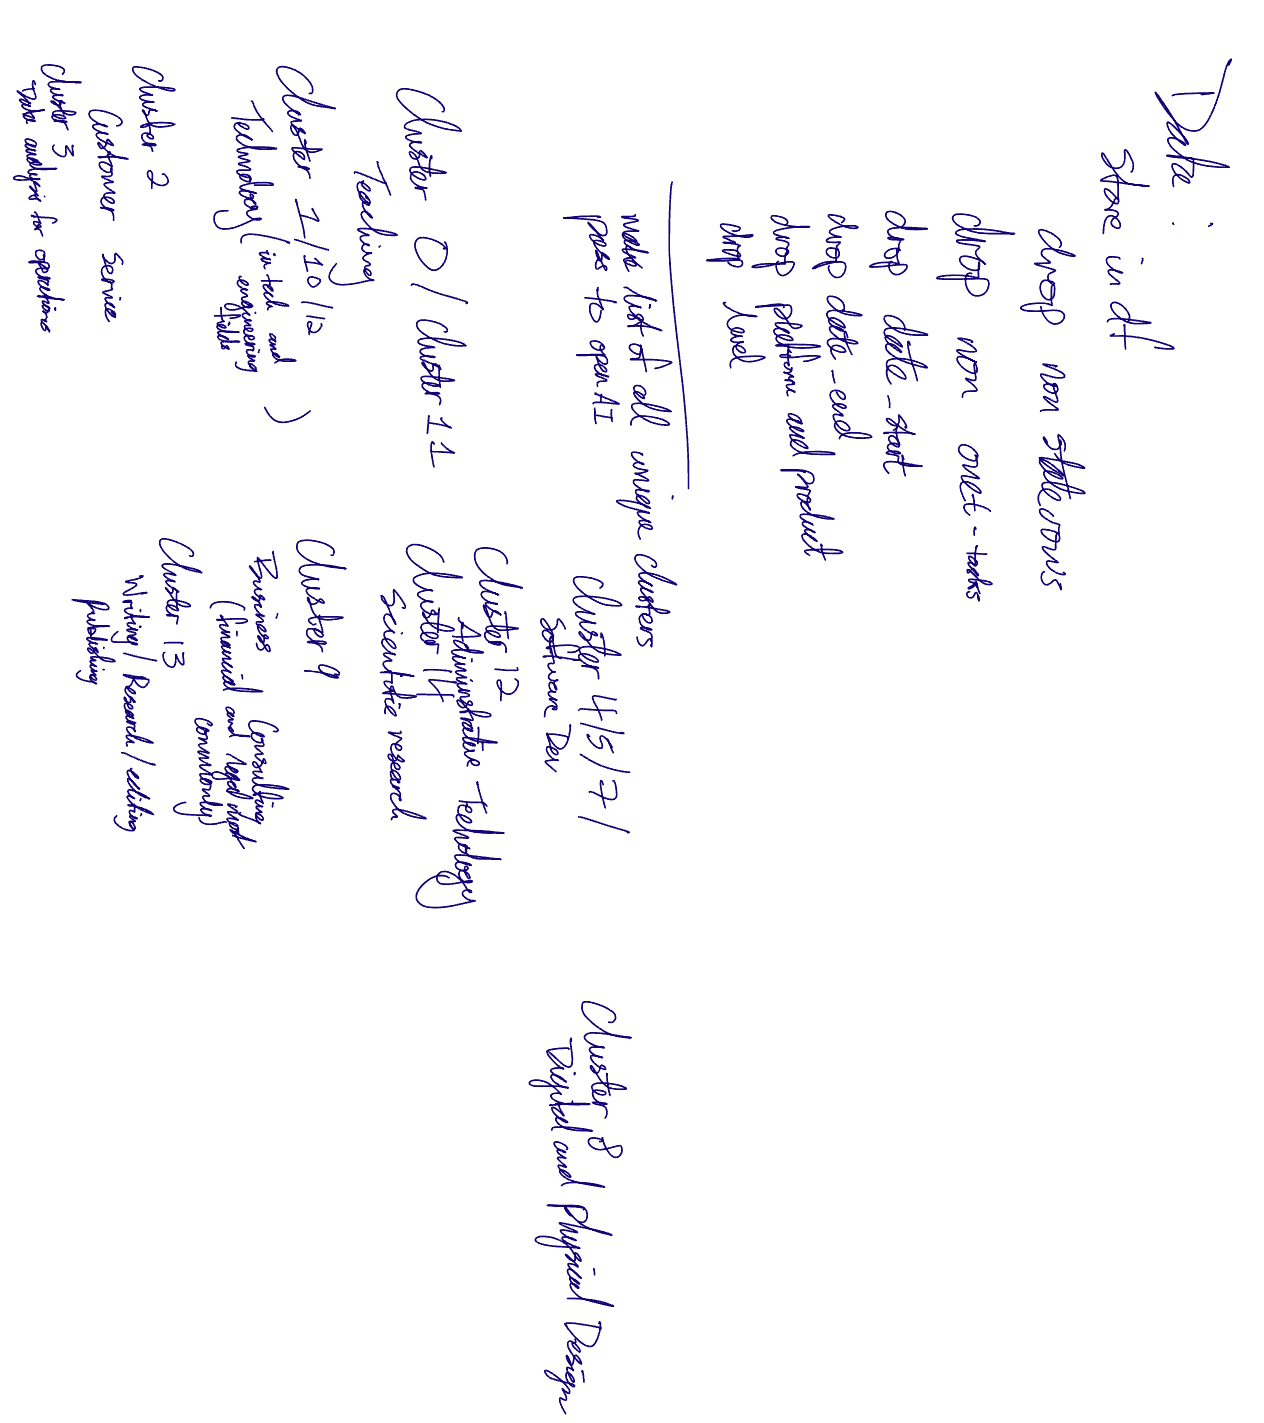 Data:
Store in df
drop non state rows
drop non onet-tasks
drop date-start
drop date-end
drop platform and product
drop level
make list of all unique clusters
pass to openAI
Cluster 0 / Cluster 11
Teaching
Cluster 1/10/12
Technology (in tech and
engineering
fields)
Cluster 2
Customer Service
Cluster 3
Data analysis for operations
Cluster 4/5/7/
Software Dev
Cluster 12
Administrative Technology
Cluster 14
Scientific research
Cluster 9
Business Consulting
(financial and legal most
commonly)
Cluster 13
Writing / Research / editing
Publishing
Cluster 8
Digital and Physical Design